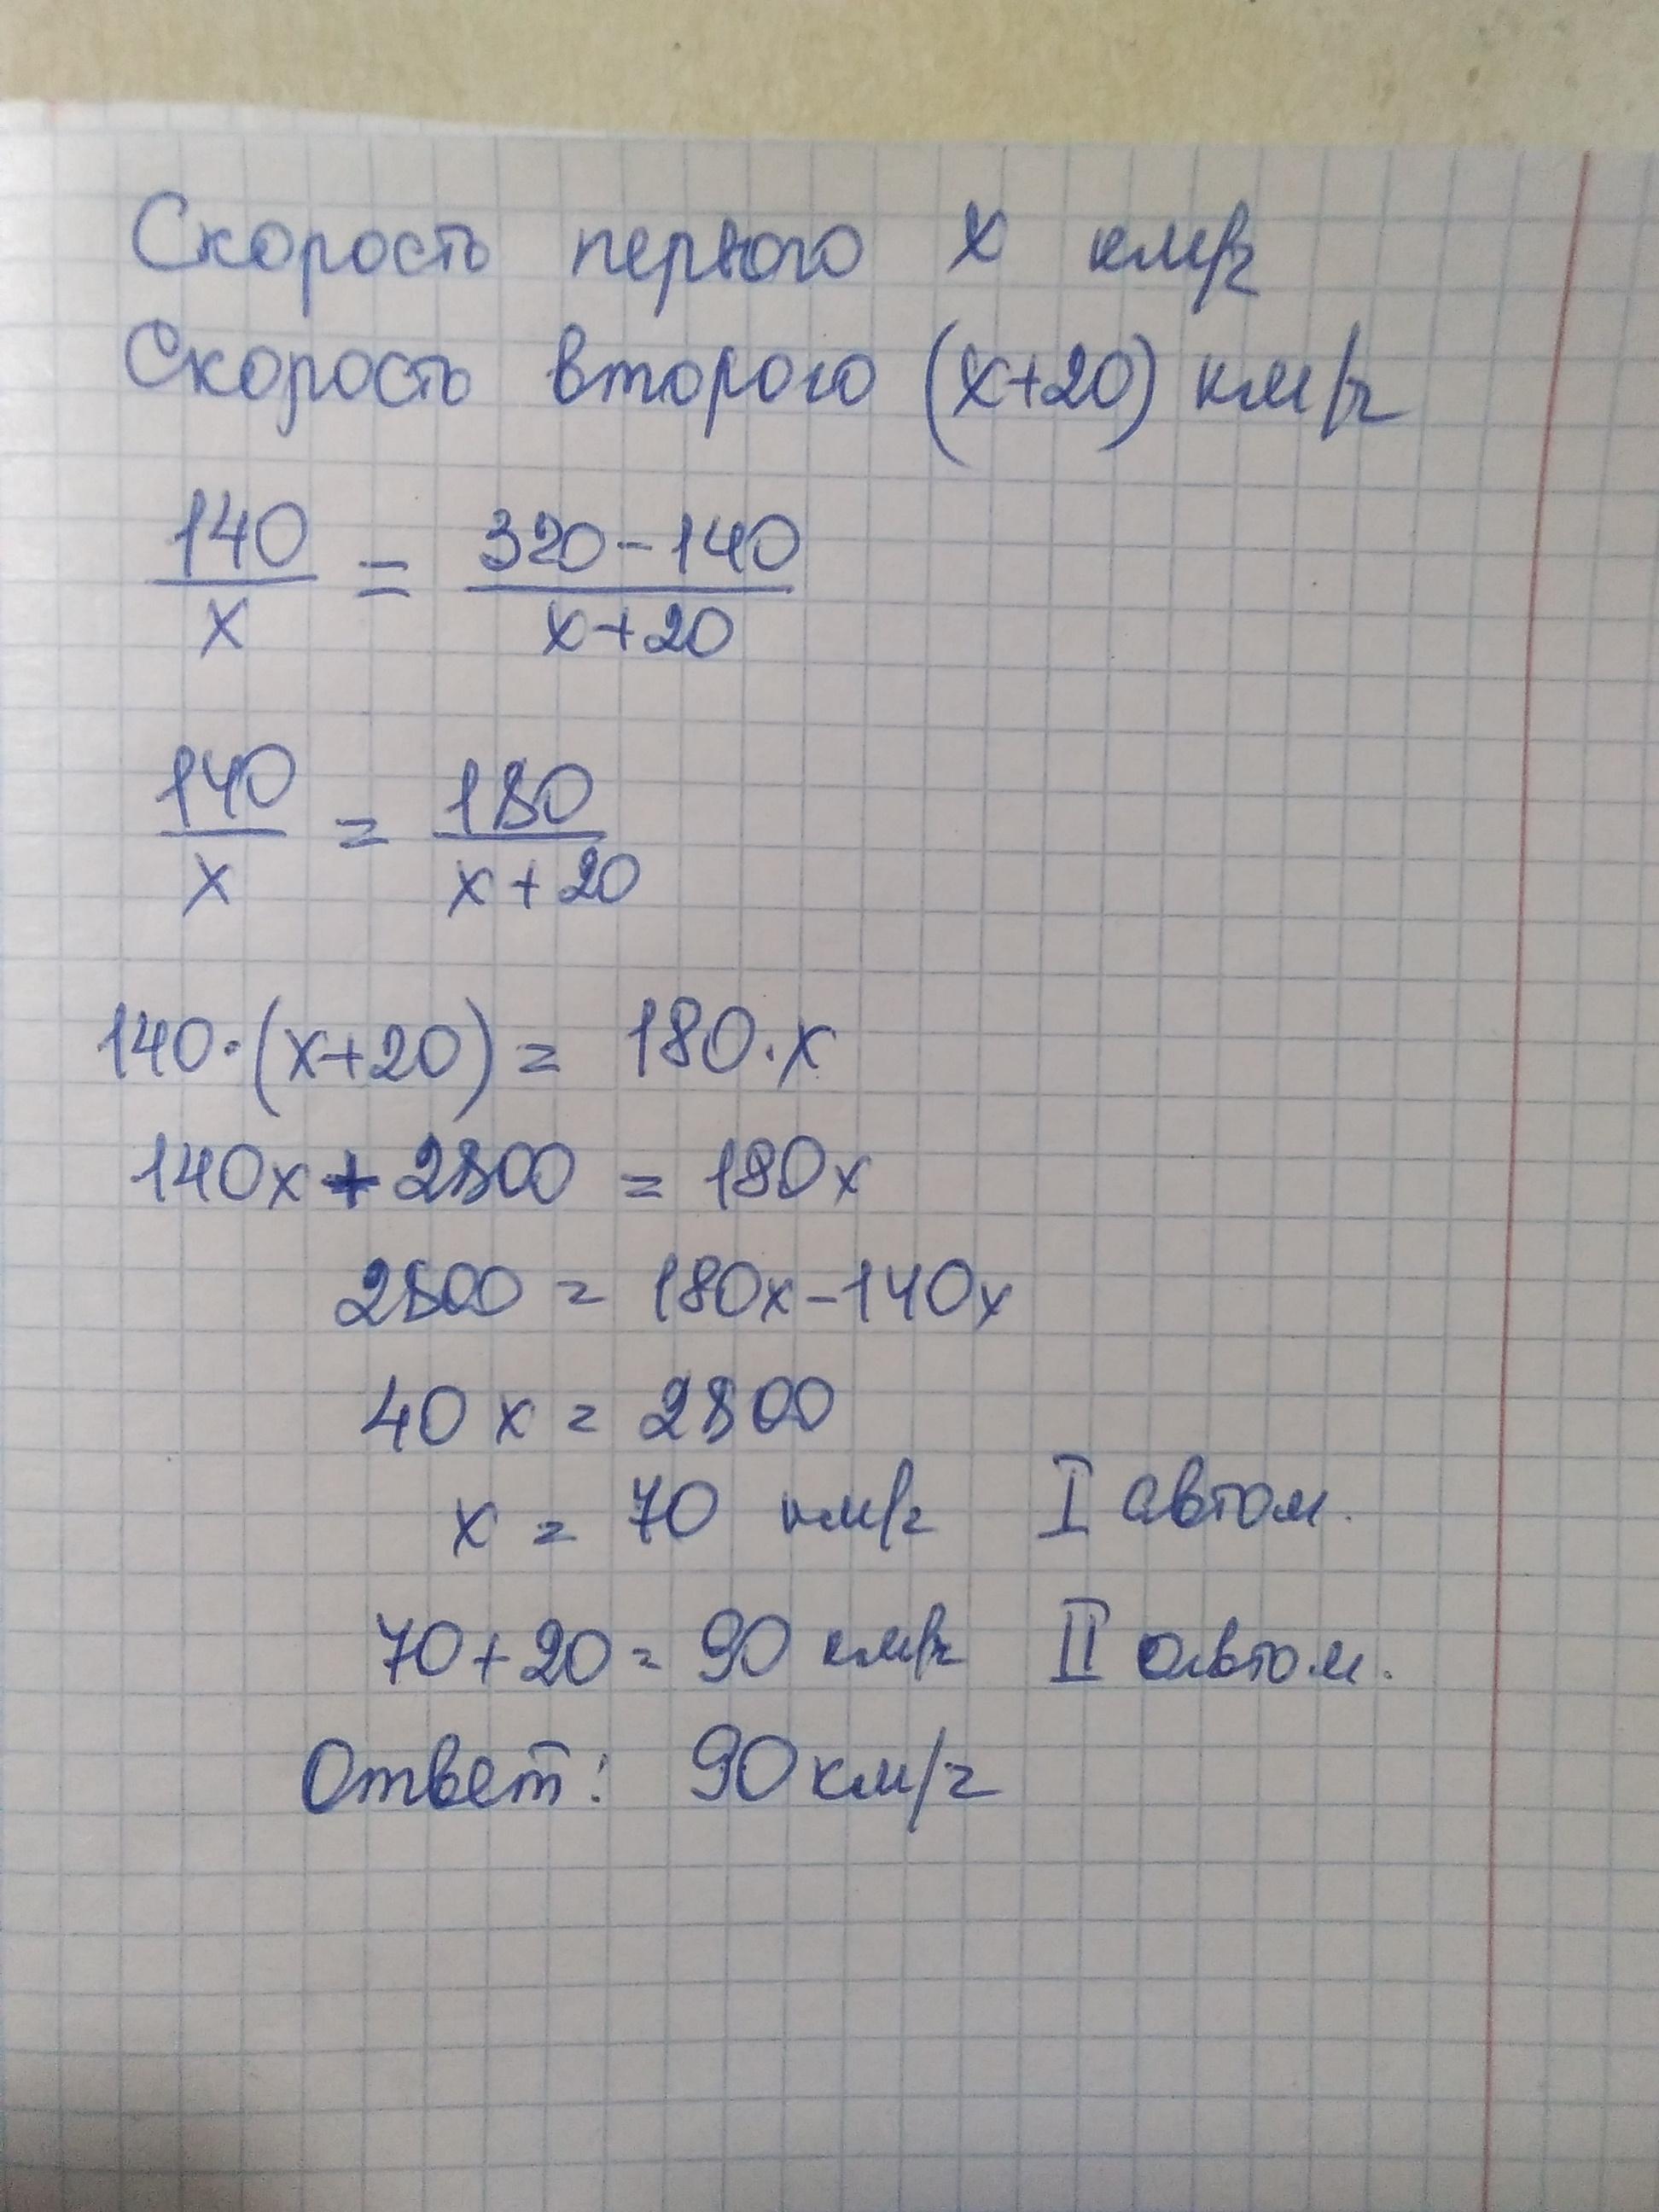 Скорость первого x км/ч
Скорость второго (x+20) км/ч
140/x = (320-140)/(x+20)
140/x = 180/(x+20)
140·(x+20) = 180·x
140x + 2800 = 180x
2800 = 180x-140x
40x = 2800
x = 70 км/ч I автом.
70+20 = 90 км/ч II автом.
Ответ: 90 км/ч